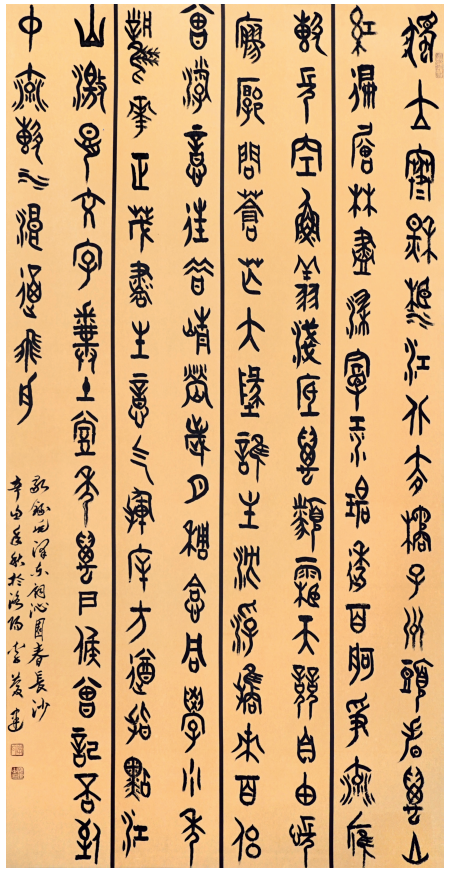 獨立寒秋湘江北去橘子洲頭看萬山
紅遍層林盡染漫江碧透百舸爭流鷹
擊長空魚翔淺底萬類霜天競自由悵
寥廓問蒼茫大地誰主沉浮攜來百侶
曾遊憶往昔崢嶸歲月稠恰同學少年
風華正茂書生意氣揮斥方遒指點江
山激揚文字糞土當年萬戶侯曾記否到
中流擊水浪遏飛舟
敬錄毛澤東詞沁園春長沙
年秋於洛陽